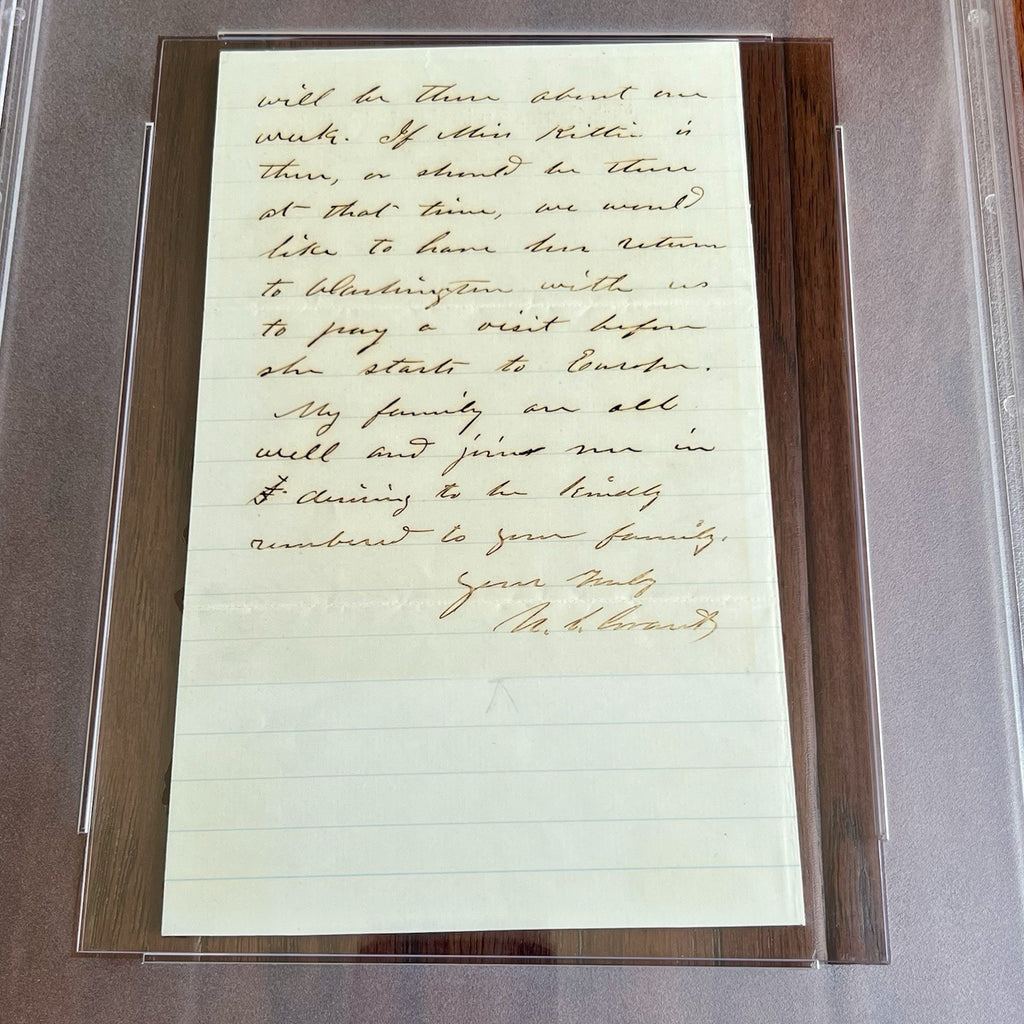 will be there about one
week. If Miss Kittie is
there, or should be there
at that time, we would
like to have her return
to Washington with us
to pay a visit before
she starts to Europe.
My family are all
well and join me in
desiring to be kindly
rembered to your family.
Yours Truly
U. S. Grant